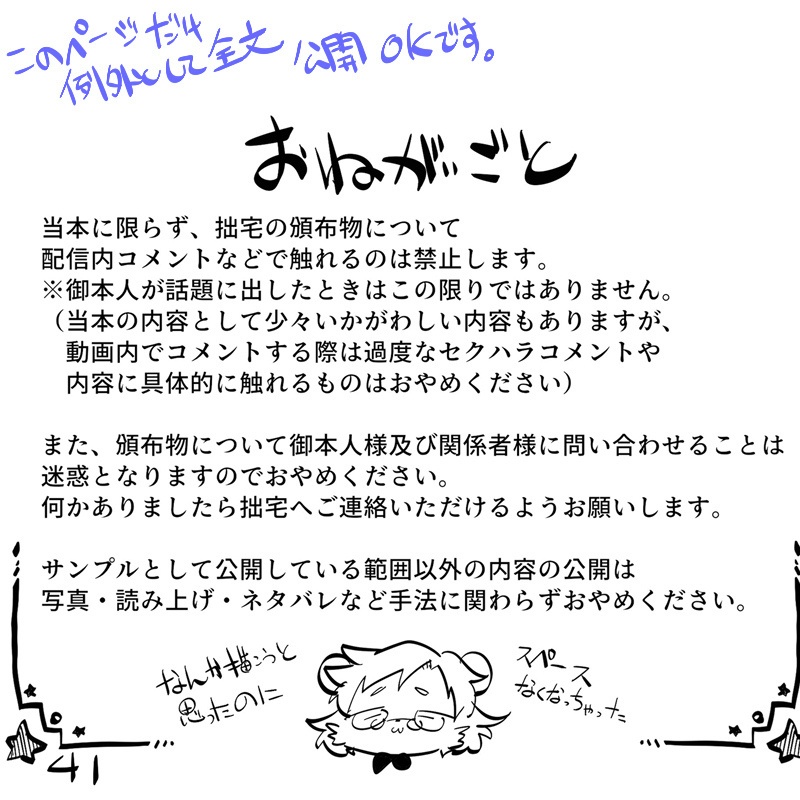 このページだけ
例外として全文公開OKです。
おねがごと
当本に限らず、拙宅の頒布物について
配信内コメントなどで触れるのは禁止します。
※御本人が話題に出したときはこの限りではありません。
（当本の内容として少々いかがわしい内容もありますが、
動画内でコメントする際は過度なセクハラコメントや
内容に具体的に触れるものはおやめください）
また、頒布物について御本人様及び関係者様に問い合わせることは
迷惑となりますのでおやめください。
何かありましたら拙宅へご連絡いただけるようお願いします。
サンプルとして公開している範囲以外の内容の公開は
写真・読み上げ・ネタバレなど手法に関わらずおやめください。
なんか描こうと
思ったのに
スペース
なくなっちゃった
41